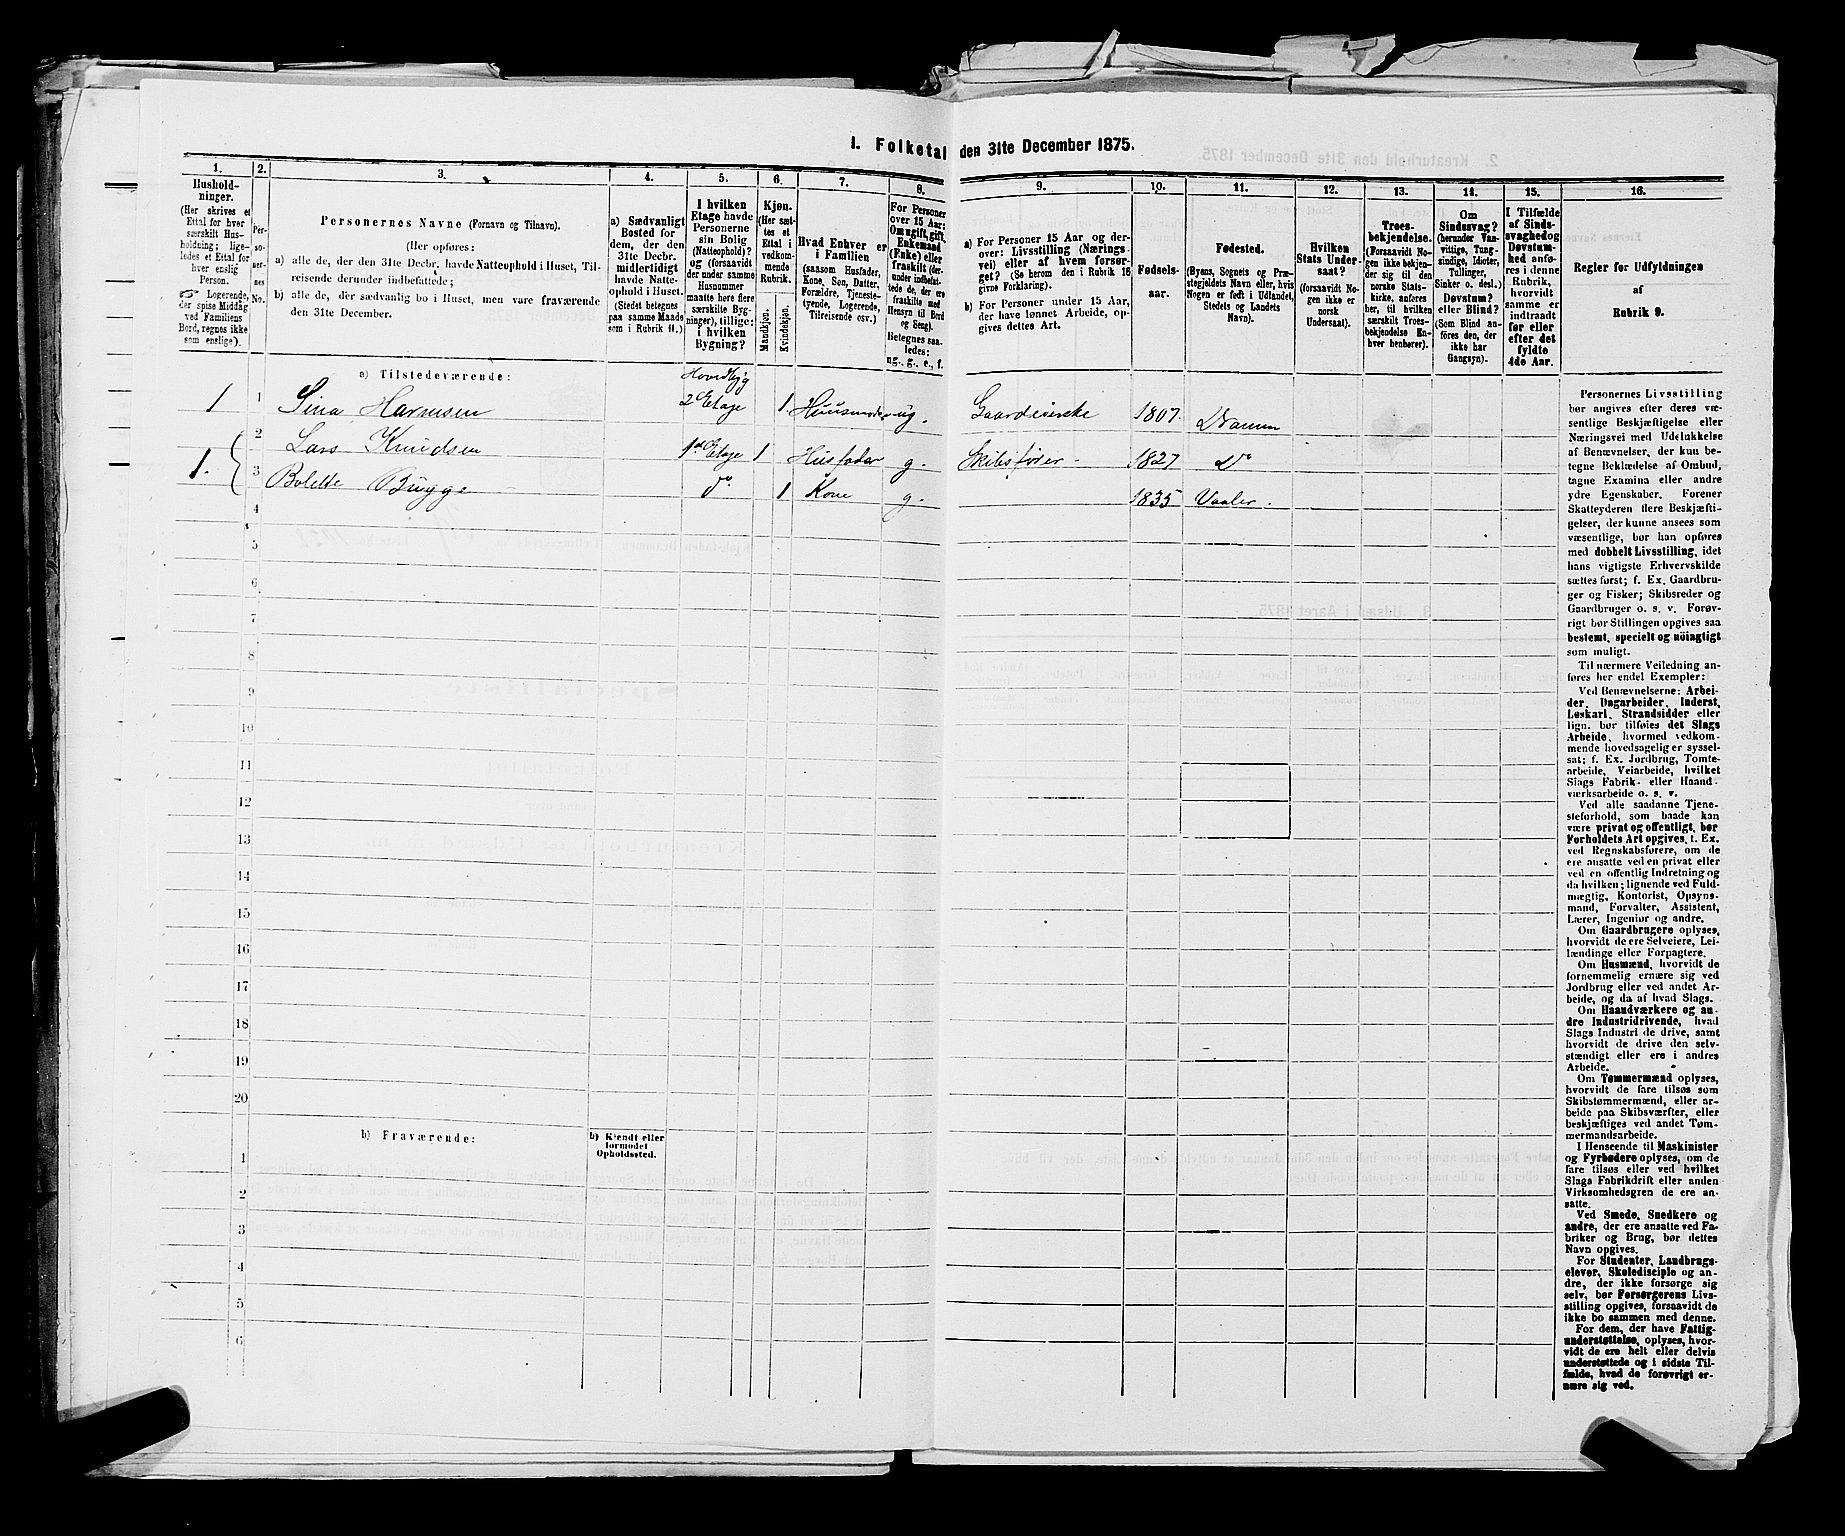 1. Folketal den 31te December 1875.
1. 2. 3. 4. 5. 6. 7. 8. 9. 10. 11. 12. 13. 14. 15. 16.
Hushold-
ninger.
(Her skrives et
Ettal for hver
særskilt Hus-
holdning; lige-
ledes et Ettal for
hver enslig
Person.
☞ Logerende,
der spise Middag
ved Familiens
Bord, regnes ikke
som enslige).
Per-
so-
ner-
nes
No.
Personernes Navne (Fornavn og Tilnavn).
(Her opføres:
a) alle de, der den 31te Decbr. havde Natteophold i Huset, Til-
reisende derunder indbefattede;
b) alle de, der sædvanlig bo i Huset, men vare fraværende
den 31te December.
a) Sædvanligt
Bosted for
dem, der den
31te Decbr.
midlertidigt
havde Natte-
ophold i Huset.
(Stedet betegnes
paa samme Maade
som i Rubrik 11.)
I hvilken
Etage havde
Personerne
sin Bolig
(Natteophold)?
og (forsaavidt
der under samme
Husnummer
maatte høre flere
særskilte Byg-
ninger), tillige:
i hvilken
Bygning?
Kjøn.
(Her sæt-
tes et
Ettal i
vedkom-
mende
Rubrik.
Mandkjøn.
Kvindekjøn.
Hvad Enhver er
i Familien
(saasom Husfader,
Kone, Søn, Datter,
Forældre, Tjeneste-
tyende, Logerende,
Tilreisende osv.)
For Personer
over 15 Aar:
Om ugift, gift,
Enkemand
(Enke) eller
fraskilt (der-
under indbefat-
tede de, der ere
fraskilte med
Hensyn til Bord
og Seng).
Betegnes saa-
ledes:
ug., g., e., f.
a) For Personer 15 Aar og der-
over: Livsstilling (Nærings-
vei) eller af hvem forsør-
get? (Se herom den i Rubrik 16
givne Forklaring).
b) For Personer under 15 Aar,
der have lønnet Arbeide, op-
gives dettes Art.
Fødsels-
aar.
Fødested.
(Byens, Sognets og Præ-
stegjeldets Navn eller, hvis
Nogen er født i Udlandet,
Stedets og Landets
Navn).
Hvilken
Stats Under-
saat?
(forsaavidt No-
gen ikke er
norsk
Undersaat).
Troes-
bekjendelse.
(Forsaavidt No-
gen ikke bekjen-
der sig til den
norske Stats-
kirke, anføres
her, til hvilken
særskilt Troes-
bekjendelse En-
hver henhører).
Om
Sindssvag?
(herunder Van-
vittige, Tung-
sindige, Idioter,
Tullinger,
Sinker o. desl.)
Døvstum?
eller Blind?
(Som Blind an-
føres den, der
ikke har
Gangsyn).
I Tilfælde
af Sinds-
svaghed og
Døvstum-
hed anfø-
res i denne
Rubrik,
hvorvidt
samme er
indtraadt
før eller
efter det
fyldte
4de Aar.
Regler for Udfyldningen
af
Rubrik 9.
a) Tilstedeværende:
Hovedbyg
1 1 Sina Harmsen 2 Etage 1 Huusmoder ug. Gaardeierske 1807.
1. 2 Lars Knudsen 1st Etage 1 Husfader g. Skibsfører 1827 Do
3 Bolette Bugge do. 1 Kone g. 1835 Vaaler.
4
5
6
7
8
9
10
11
12
13
14
15
16
17
18
19
20
b) Fraværende: b) Kjendt eller
formodet
Opholdssted.
1
2
3
4
5
6
Personernes Livsstilling
bør angives efter deres væ-
sentlige Beskjæftigelse eller
Næringsvei med Udelukkelse
af Benævnelser, der kun be-
tegne Beklædelse af Ombud,
tagne Examina eller andre
ydre Egenskaber. Forener
Skatteyderen flere Beskjæfti-
gelser, der kunne ansees som
væsentlige, bør han opføres
med dobbelt Livsstilling, idet
hans vigtigste Erhvervskilde
sættes først; f. Ex. Gaardbru-
ger og Fisker; Skibsreder og
Gaardbruger o. s. v. Forøv-
rigt bør Stillingen opgives saa
bestemt, specielt og nöiagtigt
som muligt.
Til nærmere Veiledning an-
føres her endel Exempler:
Ved Benævnelserne: Arbei-
der, Dagarbeider, Inderst,
Løskarl, Strandsidder eller
lign. bør tilføies det Slags
Arbeide, hvormed vedkom-
mende hovedsagelig er syssel-
sat; f. Ex. Jordbrug, Tomte-
arbeide, Veiarbeide, hvilket
Slags Fabrik- eller Haand-
værksarbeide o. s. v.
Ved alle saadanne Tjene-
steforhold, som baade kan
være privat og offentligt, bør
Forholdets Art opgives, t. Ex.
ved Regnskabsførere, om de
ere ansatte ved en privat eller
ved en offentlig Indretning og
da hvilken; lignende ved Fuld-
mægtig, Kontorist, Opsyns-
mand, Forvalter, Assistent,
Lærer, Ingeniør og andre.
Om Gaardbrugere oplyses,
hvorvidt de ere Selveiere, Lei-
lændinge eller Forpagtere.
Om Husmænd, hvorvidt de
fornemmelig ernære sig ved
Jordbrug eller ved andet Ar-
beide, og da af hvad Slags.
Om Haandværkere og an-
dre Industridrivende, hvad
Slags Industri de drive, samt
hvorvidt de drive den selv-
stændigt eller ere i andres
Arbeide.
Om Tømmermænd oplyses,
hvorvidt de fare tilsøs som
Skibstømmermænd, eller ar-
beide paa Skibsværfter, eller
beskjæftiges ved andet Tøm-
mermandsarbeide.
I Henseende til Maskinister
og Fyrbødere oplyses, om de
fare tilsøs eller ved hvilket
Slags Fabrikdrift eller anden
Virksomhedsgren de ere an-
satte.
Ved Smede, Snedkere og
andre, der ere ansatte ved Fa-
briker og Brug, bør dettes
Navn opgives.
For Studenter, Landbrugs-
elever, Skoledisciple og an-
dre, der ikke forsørge sig
selv, bør Forsørgerens Livs-
stilling opgives, forsaavidt de
ikke bo sammen med denne.
For dem, der have Fattig-
understøttelse, oplyses, hvor-
vidt de ere helt eller delvis
understøttede og i sidste Til-
fælde, hvad de forøvrigt er-
nære sig ved.